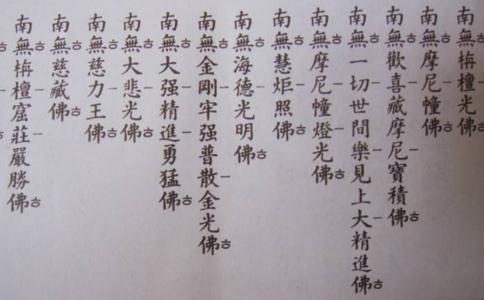 南無栴檀光佛
南無摩尼幢佛
南無歡喜藏摩尼寶積佛
南無一切世間樂見上大精進佛
南無摩尼幢燈光佛
南無慧炬照佛
南無海德光明佛
南無金剛牢强普散金光佛
南無大强精進勇猛佛
南無大悲光佛
南無慈力王佛
南無慈藏佛
南無栴檀窟莊嚴勝佛